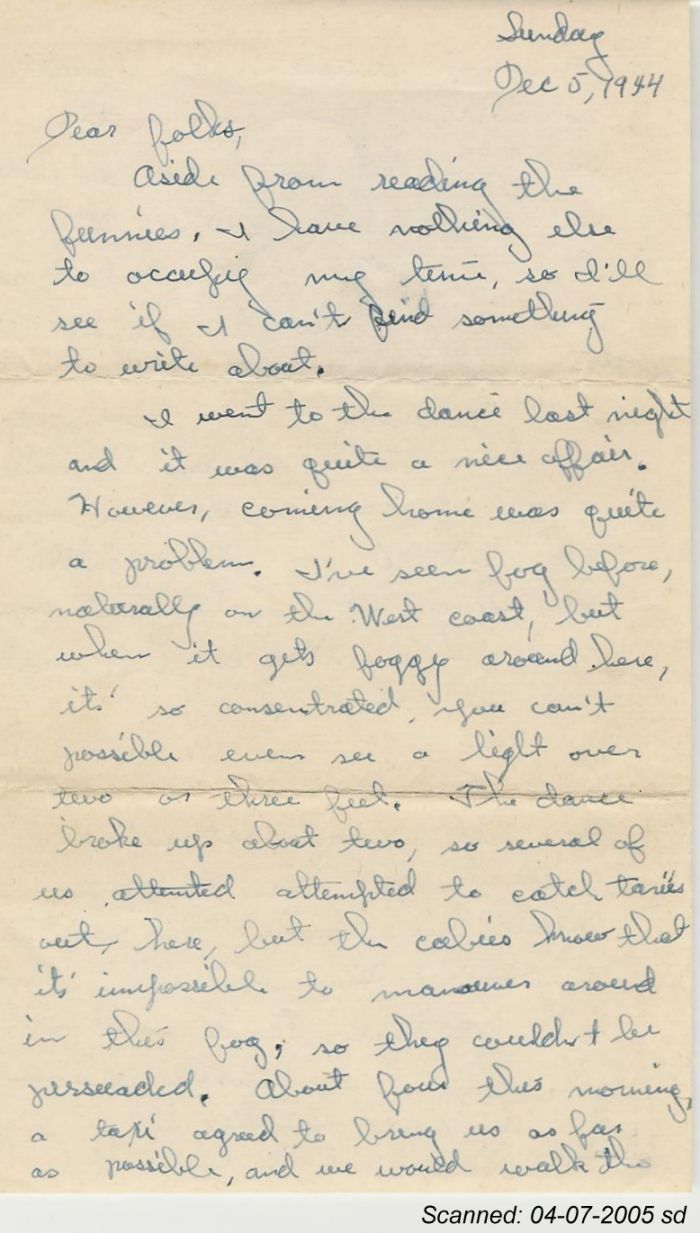 Sunday
Dec 5, 1944
Dear folks,
Aside from reading the
funnies, I have nothing else
to occupy my time, so I'll
see if I can't find something
to write about.
I went to the dance last night
and it was quite a nice affair.
However, coming home was quite
a problem. I've seen fog before,
naturally on the West coast, but
when it gets foggy around here,
its' so consentrated, you can't
possible even see a light over
two or three feet. The dance
broke up about two, so several of
us attempted to catch taxi's
out here, but the cabies know that
its' impossible to around
in this fog, so they couldn't be
persuaded. About four this morning,
a taxi agreed to bring us as far
as possible, and we would walk the
Scanned: 04-07-2005 sd